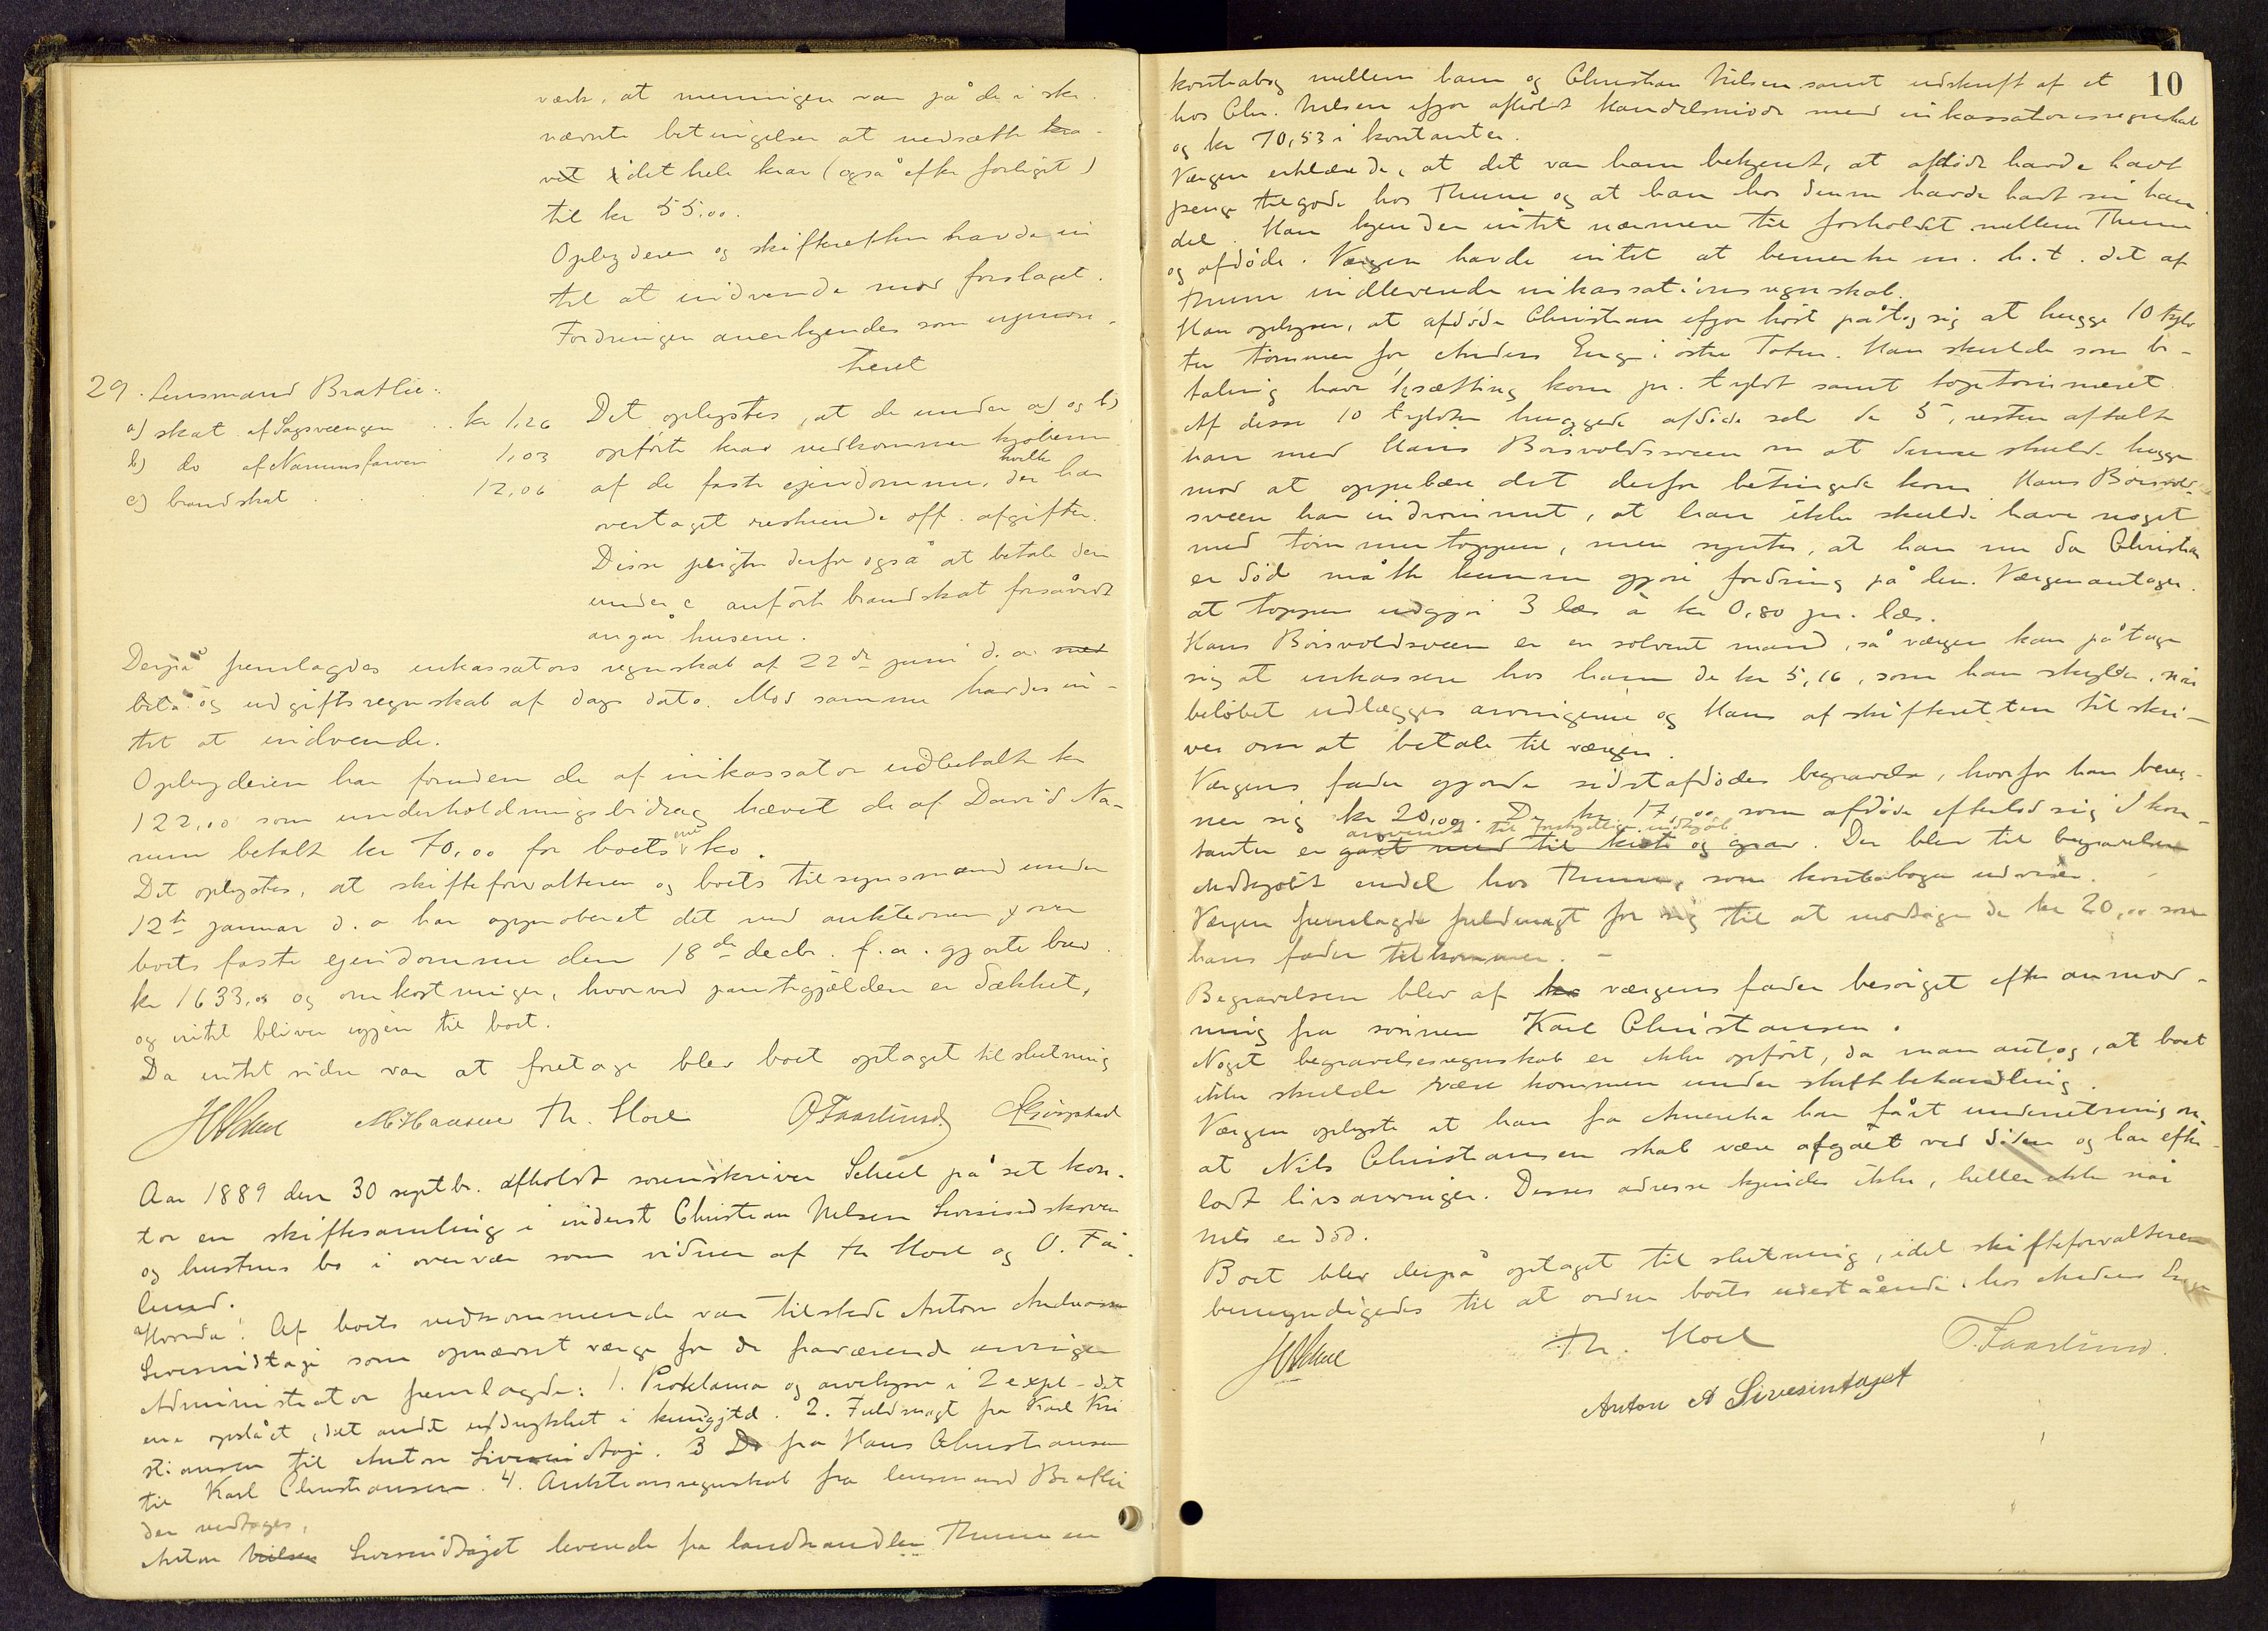 værk, at meningen var på de i skr.
nævnte betingelser at nedsætte kra-
vet i det hele krav (også efter forliget)
til kr 55.00.
Opbyderen og skifteretten havde in
tet at indvende mod forslaget.
Fordringen anerkjendes som upriori-
teret
29. Lensmand Bratlie:
a) skat af Sagsvangen .. kr 1,26
b) do af Narumsfarveri 1,03
c) brandskat . . . 12,06
Det oplystes, at de under a) og b)
opførte krav vedkommer kjøberne
af de faste ejendomme, der hvilke har
overtaget resterende off. afgifter.
Disse pligter derfor også at betale den
under c anførte brandskat forsåvidt
angår husene.
Derpå fremlagdes inkassators regnskab af 22de juni d. a. med
bita og udgiftsregnskab af dags dato. Mod samme havdes in-
tet at indvende.
Opbyderen har foruden de af inkassator udbetalte kr
122,00 som underholdningsbidrag hævet de af David Na-
rum betalte kr 70,00 for boets ene ko.
Det oplystes, at skifteforvalteren og boets tilsynsmænd under
12te januar d. a har approberet det ved auktionen over
boets faste ejendomme den 18de decbr. f. a. gjorte bud
kr 1633,00 og omkostninger, hvorved pantegjælden er dækket,
og intet bliver igjen til boet.
Da intet videre var at foretage blev boet optaget til slutning
HScheel M Hansen Th. Hoel O Faarlund
Aar 1889 den 30 septbr. afholdt sorenskriver Scheel på sit kon-
tor en skiftesamling i inderst Christian Nilsen Sivesindskoven
og hustrus bo i overvær som vidner af Th Hoel og O. Får-
lund.
Hvorda: Af boets vedkommende var tilstede Anton Andreassen
Sivesindtaje som opnævnt værge for de fraværende arvinger
Administrator fremlagde: 1. Proklama og arvelysn i 2 expl - det
ene opslået, det andet inddrykket i kundgjtd. 2. Fuldmagt fra Karl Kri
stiansen til Anton Sivesindtaje. 3 Do fra Hans Christiansen
til Karl Christiansen. 4. Auktionsregnskab fra lensmand Bratlie
der vedtoges.
Anton Nilsen Sivesindtajet leverede fra landhandler Thune en
10
kontrabog mellem ham og Christian Nilsen samt udskrift af et
hos Chr. Nilsen ifjor afholdt Handelsmøde med inkassationsregnskab
og kr 70,53 i kontanter.
Værgen erklærede, at det var ham bekjendt, at afdøde havde havt
penge tilgode hos Thune og at han hos denne havde havt sin han-
del. Han kjender intet nærmere til forholdet mellem Thune
og afdøde. Værgen havde intet at bemerke m. h. t. det af
Thune indleverede inkassationsregnskab.
Han oplyser, at afdøde Christian ifjor høst påtog sig at hugge 10 tylv
ter tømmer for Anders Enge i østre Toten. Han skulde som be-
taling have 1 sætting korn pr. tylvt samt toptømmeret.
Af disse 10 tylvter huggede afdøde selv de 5, resten aftalte
han med Hans Boisvoldsveen om at denne skulde hugge
mod at oppebære det derfor betingede korn. Hans Boisvold-
sveen har indrømmet, at han ikke skulde have noget
med tømmertoppen, men syntes, at han nu da Christian
er død måtte kunne gjøre fordring på den. Værgen antager
at toppen udgjør 3 læs à kr 0,80 pr. læs.
Hans Boisvoldsveen er en solvent mand, så værgen kan påtage
sig at inkassere hos ham de kr 5,16, som han skylder, når
beløbet udlægges arvingerne og Hans af skifteretten tilskri-
ves om at betale til værgen.
Værgens fader gjorde sidstafdødes begravelse, hvorfor han bereg-
ner sig kr 20,00. De kr 17,00 som afdøde efterlod sig i kon-
tanter er gået med til kiste og grav anvendt til forskjellige indkjøb. Der blev til begravelsen
indkjøbt endel hos Thune, som kontrabogen udviser.
Værgen fremlagde fuldmagt for sig til at modtage de kr 20,00 som
hans fader tilkommer. -
Begravelsen blev af ha værgens fader besørget efter anmod-
ning fra sønnen Karl Christiansen.
Noget begravelsesregnskab er ikke opført, da man antog, at boet
ikke skulde være kommen under skiftebehandling.
Værgen oplyste at han fra Amerika har fået underretning om
at Nils Christiansen skal være afgået ved døden og har efter-
ladt livsarvinger. Disses adresse kjendes ikke, heller ikke når
Nils er død.
Boet blev derpå optaget til slutning, idet skifteforvalteren
bemyndigedes til at ordne boets udestående hos Anders Enge
HScheel Th. Hoel O. Faarlund.
Anton A Sivesintajet